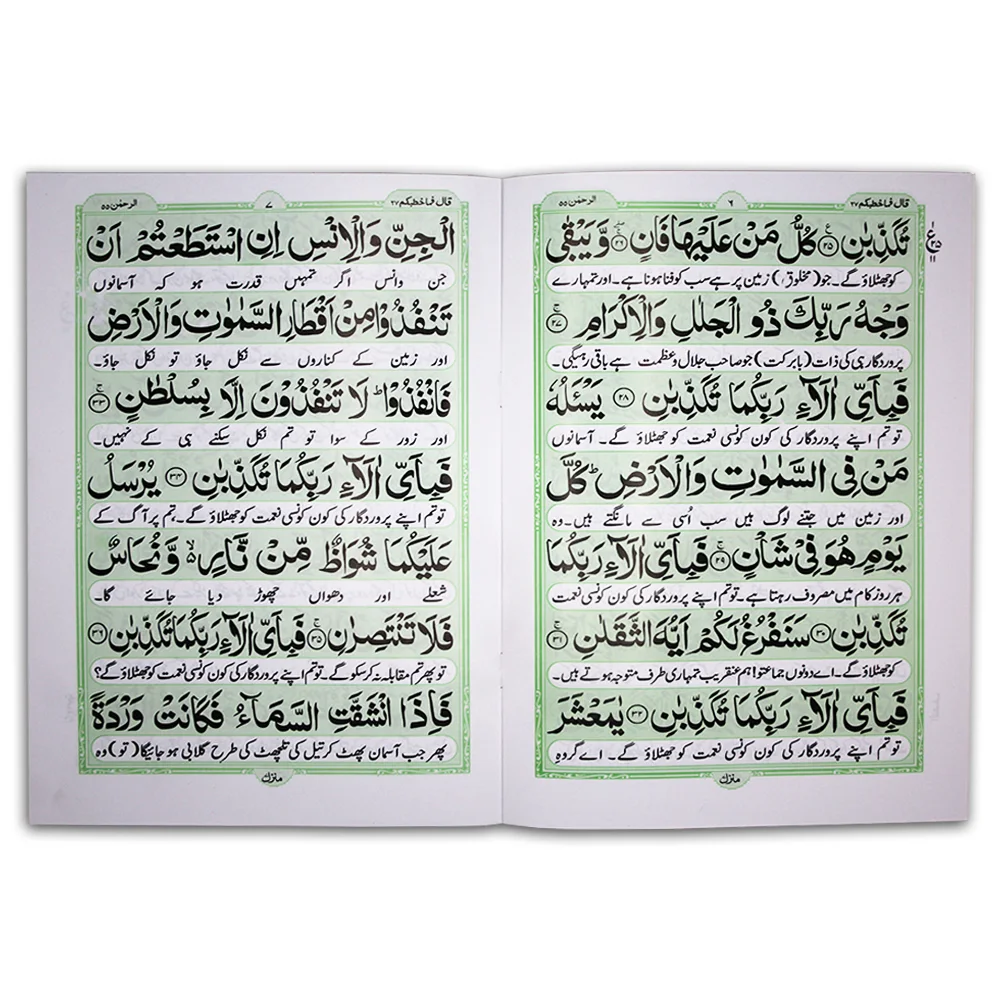 قال فما خطبكم ٢٧
٦
الرحمٰن ٥٥
ع
تُكَذِّبٰنِ ﴿٢٥﴾ كُلُّ مَنْ عَلَيْهَا فَانٍ ﴿٢٦﴾ وَّيَبْقٰى
کو جھٹلاؤ گے۔ جو (مخلوق) زمین پر ہے سب کو فنا ہونا ہے۔ اور تمہارے
وَجْهُ رَبِّكَ ذُو الْجَلٰلِ وَالْاِكْرَامِ ﴿٢٧﴾
پروردگار ہی کی ذات (بابرکت) جو صاحب جلال و عظمت ہے باقی رہیگی۔
فَبِاَىِّ اٰلَآءِ رَبِّكُمَا تُكَذِّبٰنِ ﴿٢٨﴾ يَسْـَٔلُهٗ
تو تم اپنے پروردگار کی کون کونسی نعمت کو جھٹلاؤ گے۔ آسمانوں
مَنْ فِى السَّمٰوٰتِ وَالْاَرْضِ ؕ كُلَّ
اور زمین میں جتنے لوگ ہیں سب اُسی سے مانگتے ہیں۔ وہ
يَوْمٍ هُوَ فِىْ شَاْنٍ ﴿٢٩﴾ فَبِاَىِّ اٰلَآءِ رَبِّكُمَا
ہر روز کام میں مصروف رہتا ہے۔ تو تم اپنے پروردگار کی کون کونسی نعمت
تُكَذِّبٰنِ ﴿٣٠﴾ سَنَفْرُغُ لَكُمْ اَيُّهَ الثَّقَلٰنِ ﴿٣١﴾
کو جھٹلاؤ گے۔ اے دونوں جماعتو! ہم عنقریب تمہاری طرف متوجہ ہوتے ہیں۔
فَبِاَىِّ اٰلَآءِ رَبِّكُمَا تُكَذِّبٰنِ ﴿٣٢﴾ يٰمَعْشَرَ
تو تم اپنے پروردگار کی کون کونسی نعمت کو جھٹلاؤ گے۔ اے گروہِ
منزل
قال فما خطبكم ٢٧
٧
الرحمٰن ٥٥
الْجِنِّ وَالْاِنْسِ اِنِ اسْتَطَعْتُمْ اَنْ
جن وانس اگر تمہیں قدرت ہو کہ آسمانوں
تَنْفُذُوْا مِنْ اَقْطَارِ السَّمٰوٰتِ وَالْاَرْضِ
اور زمین کے کناروں سے نکل جاؤ تو نکل جاؤ۔
فَانْفُذُوْا ؕ لَا تَنْفُذُوْنَ اِلَّا بِسُلْطٰنٍ ﴿٣٣﴾
اور زور کے سوا تو تم نکل سکنے ہی کے نہیں۔
فَبِاَىِّ اٰلَآءِ رَبِّكُمَا تُكَذِّبٰنِ ﴿٣٤﴾ يُرْسَلُ
تو تم اپنے پروردگار کی کون کونسی نعمت کو جھٹلاؤ گے۔ تم پر آگ کے
عَلَيْكُمَا شُوَاظٌ مِّنْ نَّارٍ ۙ وَّنُحَاسٌ
شعلے اور دھواں چھوڑ دیا جائے گا۔
فَلَا تَنْتَصِرٰنِ ﴿٣٥﴾ فَبِاَىِّ اٰلَآءِ رَبِّكُمَا تُكَذِّبٰنِ ﴿٣٦﴾
تو پھر تم مقابلہ نہ کرسکو گے۔ تو تم اپنے پروردگار کی کون کونسی نعمت کو جھٹلاؤ گے؟
فَاِذَا انْشَقَّتِ السَّمَآءُ فَكَانَتْ وَرْدَةً
پھر جب آسمان پھٹ کر تیل کی تلچھٹ کی طرح گلابی ہوجائیگا (تو) وہ
منزل